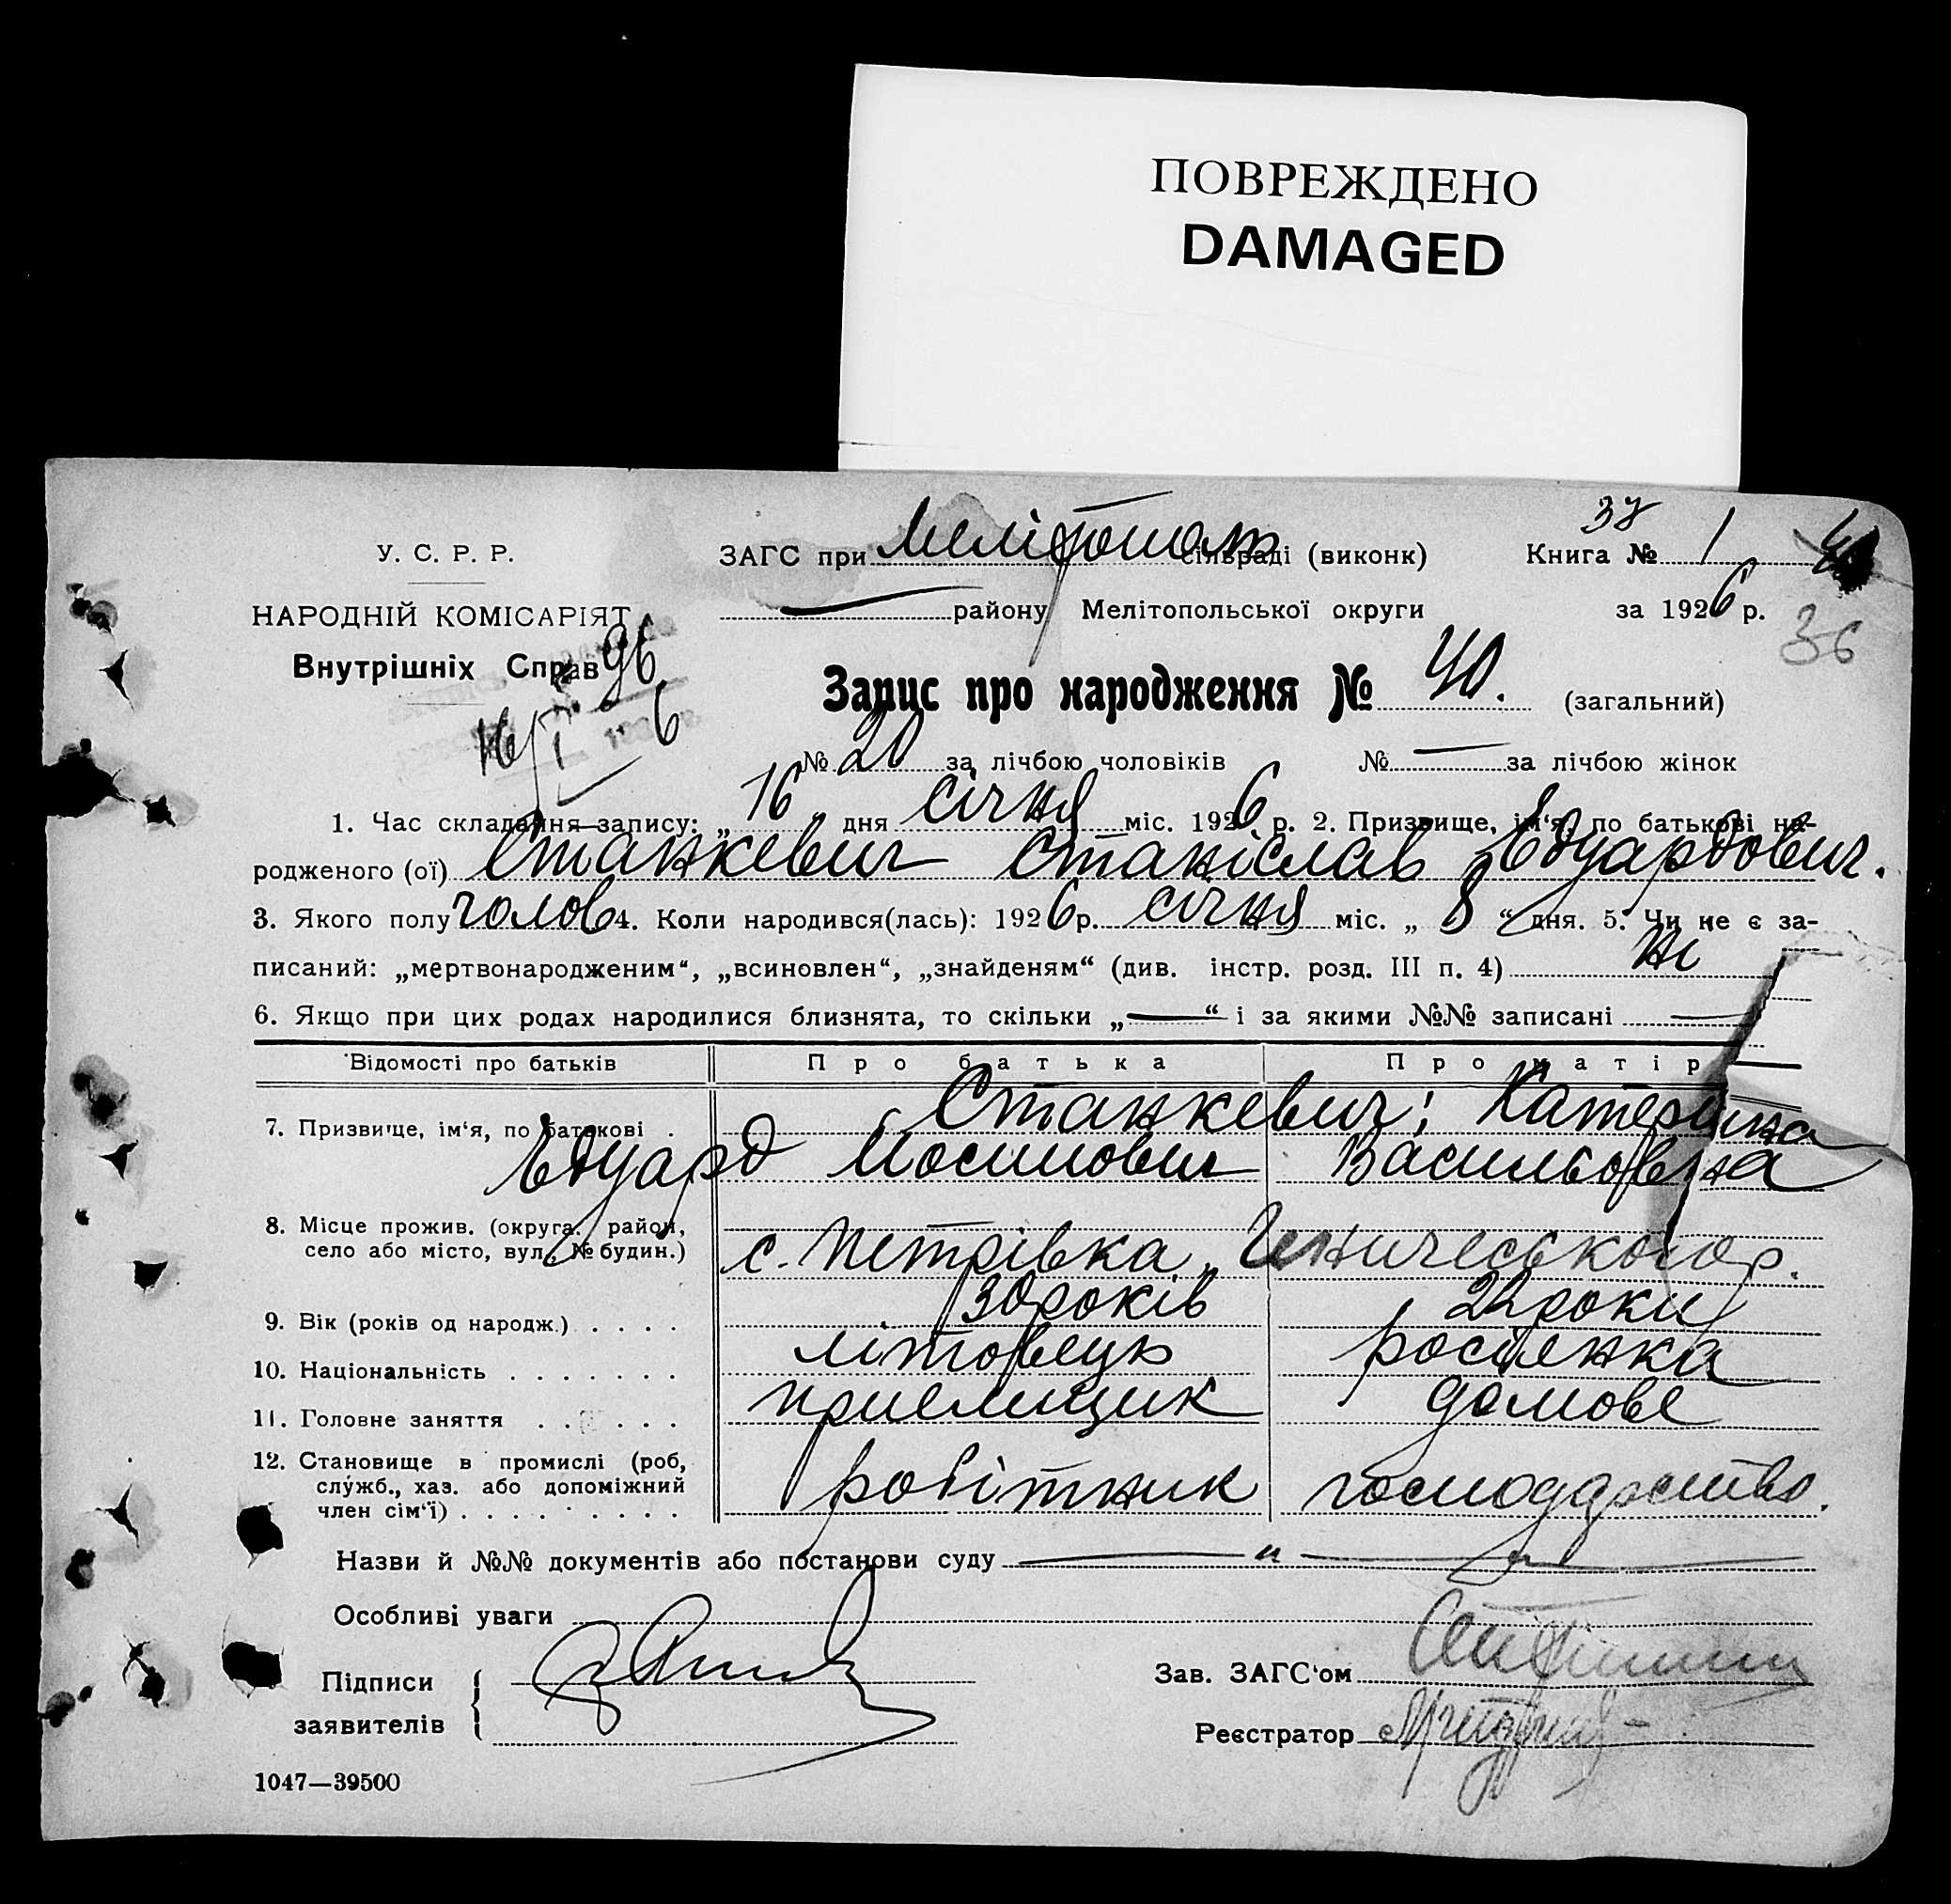 ПОВРЕЖДЕНО
DAMAGED
У. С. Р. Р.
НАРОДНІЙ КОМІСАРІЯТ
Внутрішніх Справ
96
16/I 6
38
ЗАГС при Мелітополь сільраді (виконк) Книга № 1
— району Мелітопольської округи за 1926 р.
36
Запис про народження № 40. (загальний)
№ 20 за лічбою чоловіків № — за лічбою жінок
1. Час складання запису: „16" дня січня міс. 1926 р. 2. Призвище, ім'я, по батькові на-
родженого (ої) Станкевич Станіслав Едуардович.
3. Якого полу чолов 4. Коли народився(лась): 1926 р. січня міс. „ 8 “ дня. 5. Чи не є за-
писаний: „мертвонародженим“, „всиновлен“, „знайденям“ (див. інстр. розд. III п. 4) Ні
6. Якщо при цих родах народилися близнята, то скільки „—“ і за якими №№ записані —
Відомості про батьків Про батька Про матір
7. Призвище, ім'я, по батькові . Станкевич: Катерина
Едуард Васильовна
8. Місце прожив. (округа, район,
село або місто, вул., № будин.) с. Петрівка, Генического р.
9. Вік (років од народж.) . . . . 30 років 22 роки
10. Національність . . . . . . . літовець росіенка
11. Головне заняття . . . . . . приемщик домове
12. Становище в промислі (роб,
служб., хаз. або допоміжний
член сім'ї) . . . . . . . . . робітник господарство.
Назви й №№ документів або постанови суду — " —
Особливі уваги
Підписи
заявителів
Зав. ЗАГС'ом
Реєстратор
1047—39500